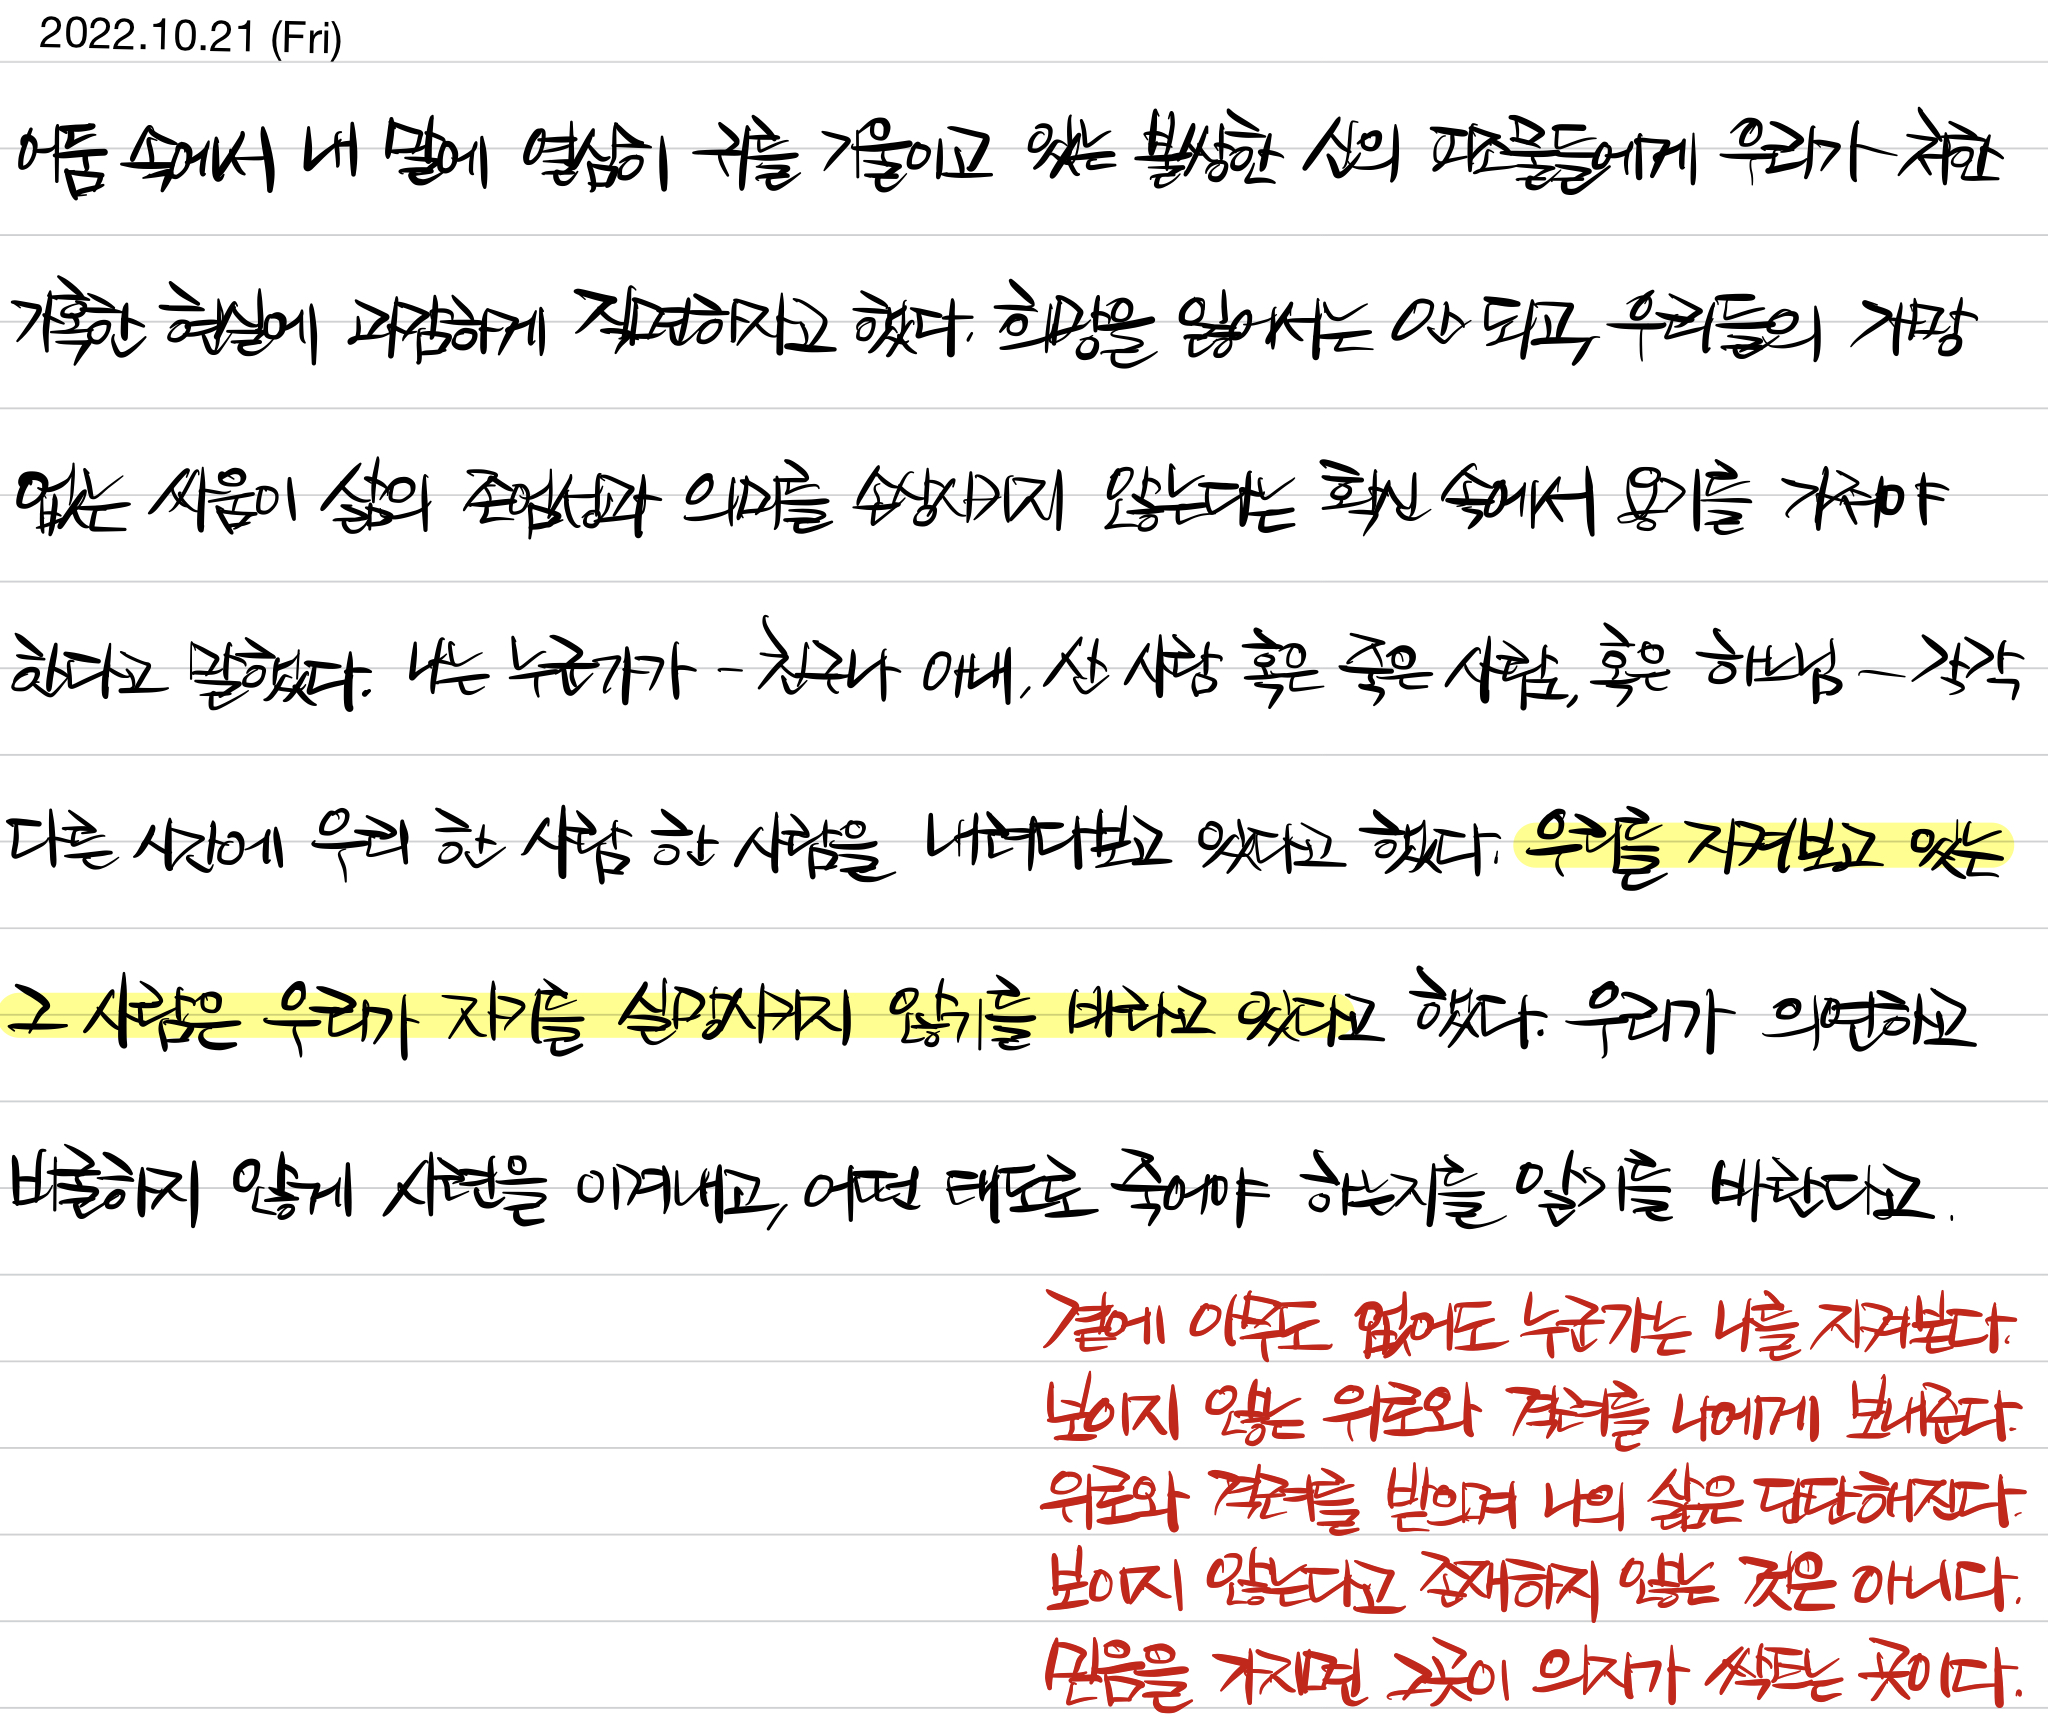 2022.10.21 (Fri)
어둠 속에서 내 말에 열심히 귀를 기울이고 있는 불쌍한 신의 피조물들에게 우리가 처한
가혹한 현실에 과감하게 직면하자고 했다. 희망을 잃어서는 안 되고, 우리들의 가망
없는 싸움이 삶의 존엄성과 의미를 손상시키지 않는다는 확신 속에서 용기를 가져야
한다고 말했다. 나는 누군가가 - 친구나 아내, 산 사람 혹은 죽은 사람, 혹은 하느님 - 각각
다른 시간에 우리 한 사람 한 사람을 내려다보고 있다고 했다. 우리를 지켜보고 있는
그 사람은 우리가 자기를 실망시키지 않기를 바라고 있다고 했다. 우리가 의연하고
비굴하지 않게 시련을 이겨내고, 어떤 태도로 죽어야 하는지를 알기를 바란다고.
곁에 아무도 없어도 누군가는 나를 지켜본다.
보이지 않는 위로와 격려를 나에게 보내준다.
위로와 격려를 받으며 나의 삶은 단단해진다.
보이지 않는다고 존재하지 않는 것은 아니다.
믿음을 가지면 그곳이 의지가 싹트는 곳이다.